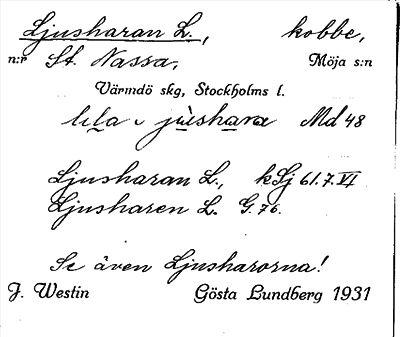 Ljusharan L., kobbe,
n:r St. Nassa, Möja s:n
Värmdö skg, Stockholms l.
lıla v jùshara Md 48
Ljusharan L., kSj 61.7.VI
Ljusharen L. G. 76.
Se även Ljusharorna!
J. Westin Gösta Lundberg 1931